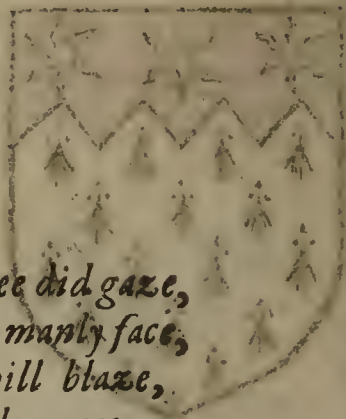 ee did gaze,
manly face,
ill blaze,